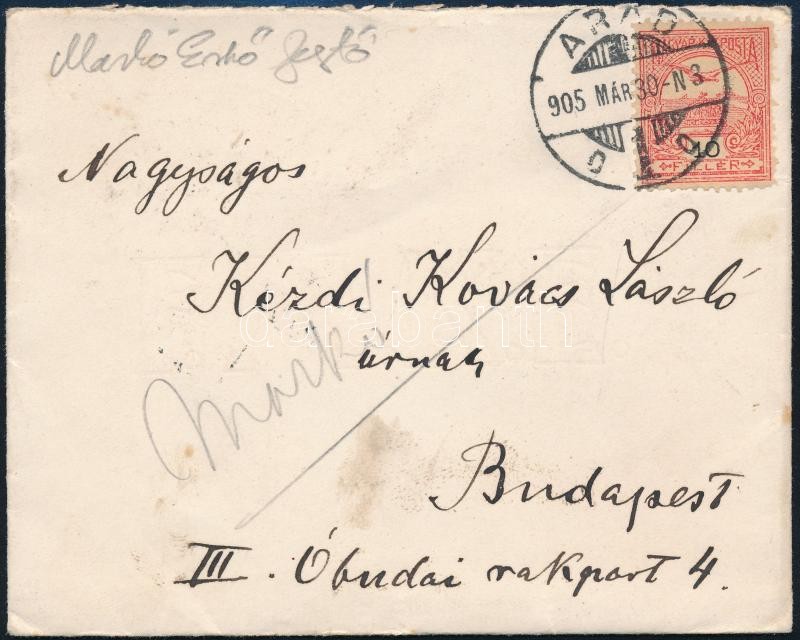 Markó Ernő festő
ARAD
905 MÁR 30-N3
MAGYAR KIR. POSTA
10
FILLÉR
Nagyságos
Kézdi Kovács László
úrnak
Markó
Budapest
III. Óbudai rakpart 4.
darabanth